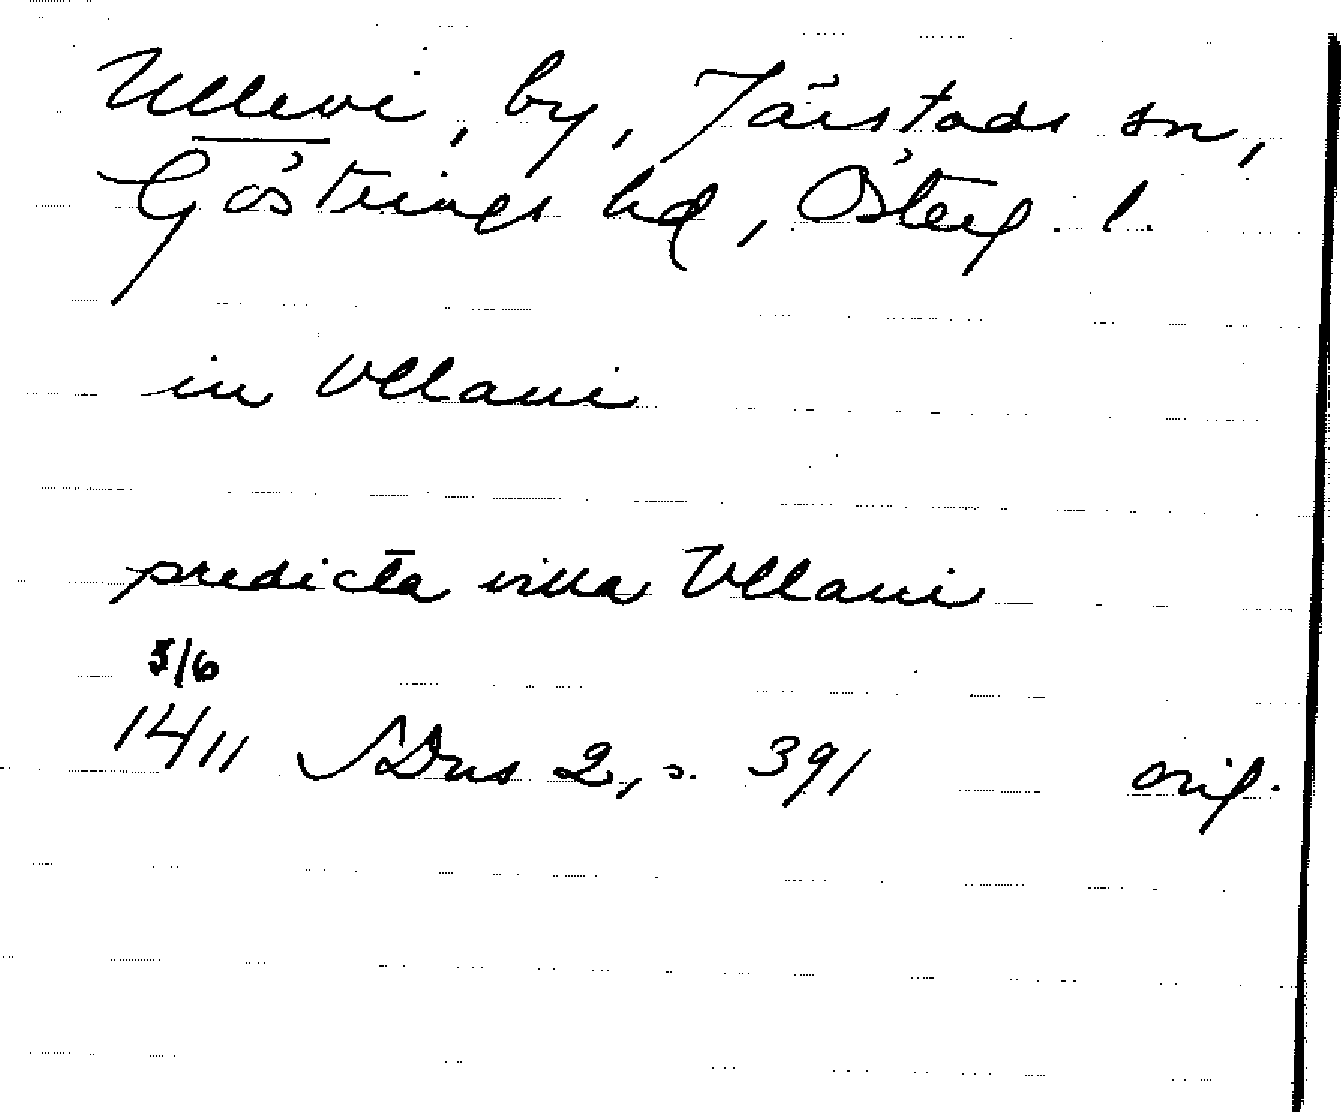 Ullevi, by, Järstads sn,
Göstrings hd, Österg. l.
in Vllaui
predicta villa Vllaui
5/6
1411 SDns 2, s. 391 orig.